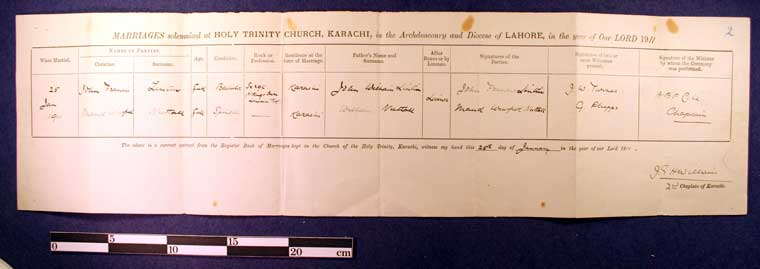 2
MARRIAGES solemnized at HOLY TRINITY CHURCH, KARACHI, in the Archdeaconry and Diocese of LAHORE, in the year of Our LORD 1911
When Married.
NAMES OF PARTIES.
Christian.
Surname.
Age.
Condition.
Rank or Profession.
Residence at the time of Marriage.
Father's Name and Surname.
After Banns or by License.
Signatures of the Parties.
Signatures of two or more Witnesses present.
Signature of the Minister by whom the Ceremony was performed.
25 John Francis Linton full Bachelor Karachi John William Linton License John Francis Linton J. W. Turner
Jan
1911 Maud Winifred Nuttall full Spinster Karachi William Nuttall Maud Winifred Nuttall G. Phipps Chaplain
The above is a correct extract from the Register Book of Marriages kept in the Church of the Holy Trinity, Karachi, witness my hand this 25th day of January in the year of our Lord 1911.
2nd Chaplain of Karachi.
0 5 10 15 20 cm